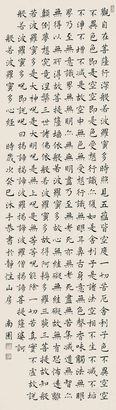 觀自在菩薩行深般若波羅蜜多時照見五蘊皆空度一切苦厄舍利子色不異空空
不異色色即是空空即是色受想行識亦復如是舍利子是諸法空相不生不滅不垢
不淨不增不減是故空中無色無受想行識無眼耳鼻舌身意無色聲香味觸法無眼
界乃至無意識界無無明亦無無明盡乃至無老死亦無老死盡無苦集滅道無智亦
無得以無所得故菩提薩埵依般若波羅蜜多故心無罣礙無罣礙故無有恐怖遠離
顛倒夢想究竟涅槃三世諸佛依般若波羅蜜多故得阿耨多羅三藐三菩提故知般若波
羅蜜多是大神咒是大明咒是無上咒是無等等咒能除一切苦真實不虛故說
般若波羅蜜多咒即說咒曰揭諦揭諦波羅揭諦波羅僧揭諦菩提薩婆訶
般若波羅蜜多心經 時歲次乙巳沐手恭書於 性山房 南園